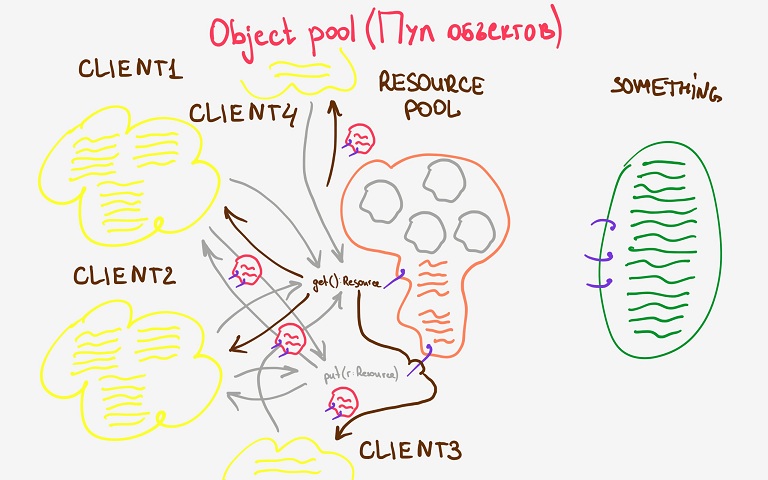 Object pool (Пул объектов)
CLIENT1
CLIENT4
RESOURCE
POOL
SOMETHING
CLIENT2
get(): Resource
put(r: Resource)
CLIENT3